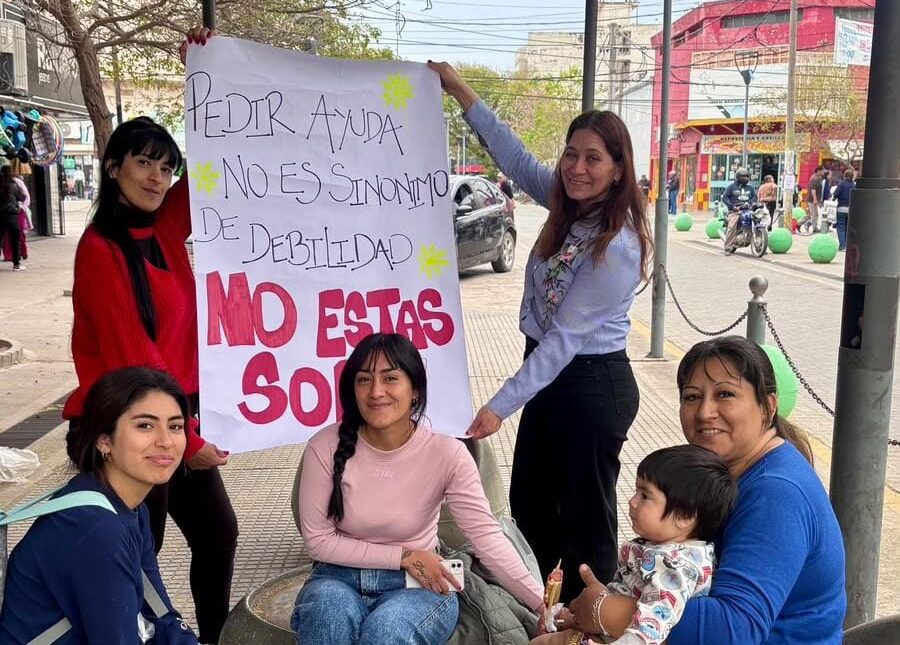 PEDIR AYUDA
NO ES SINONIMO
DE DEBILIDAD
NO ESTAS